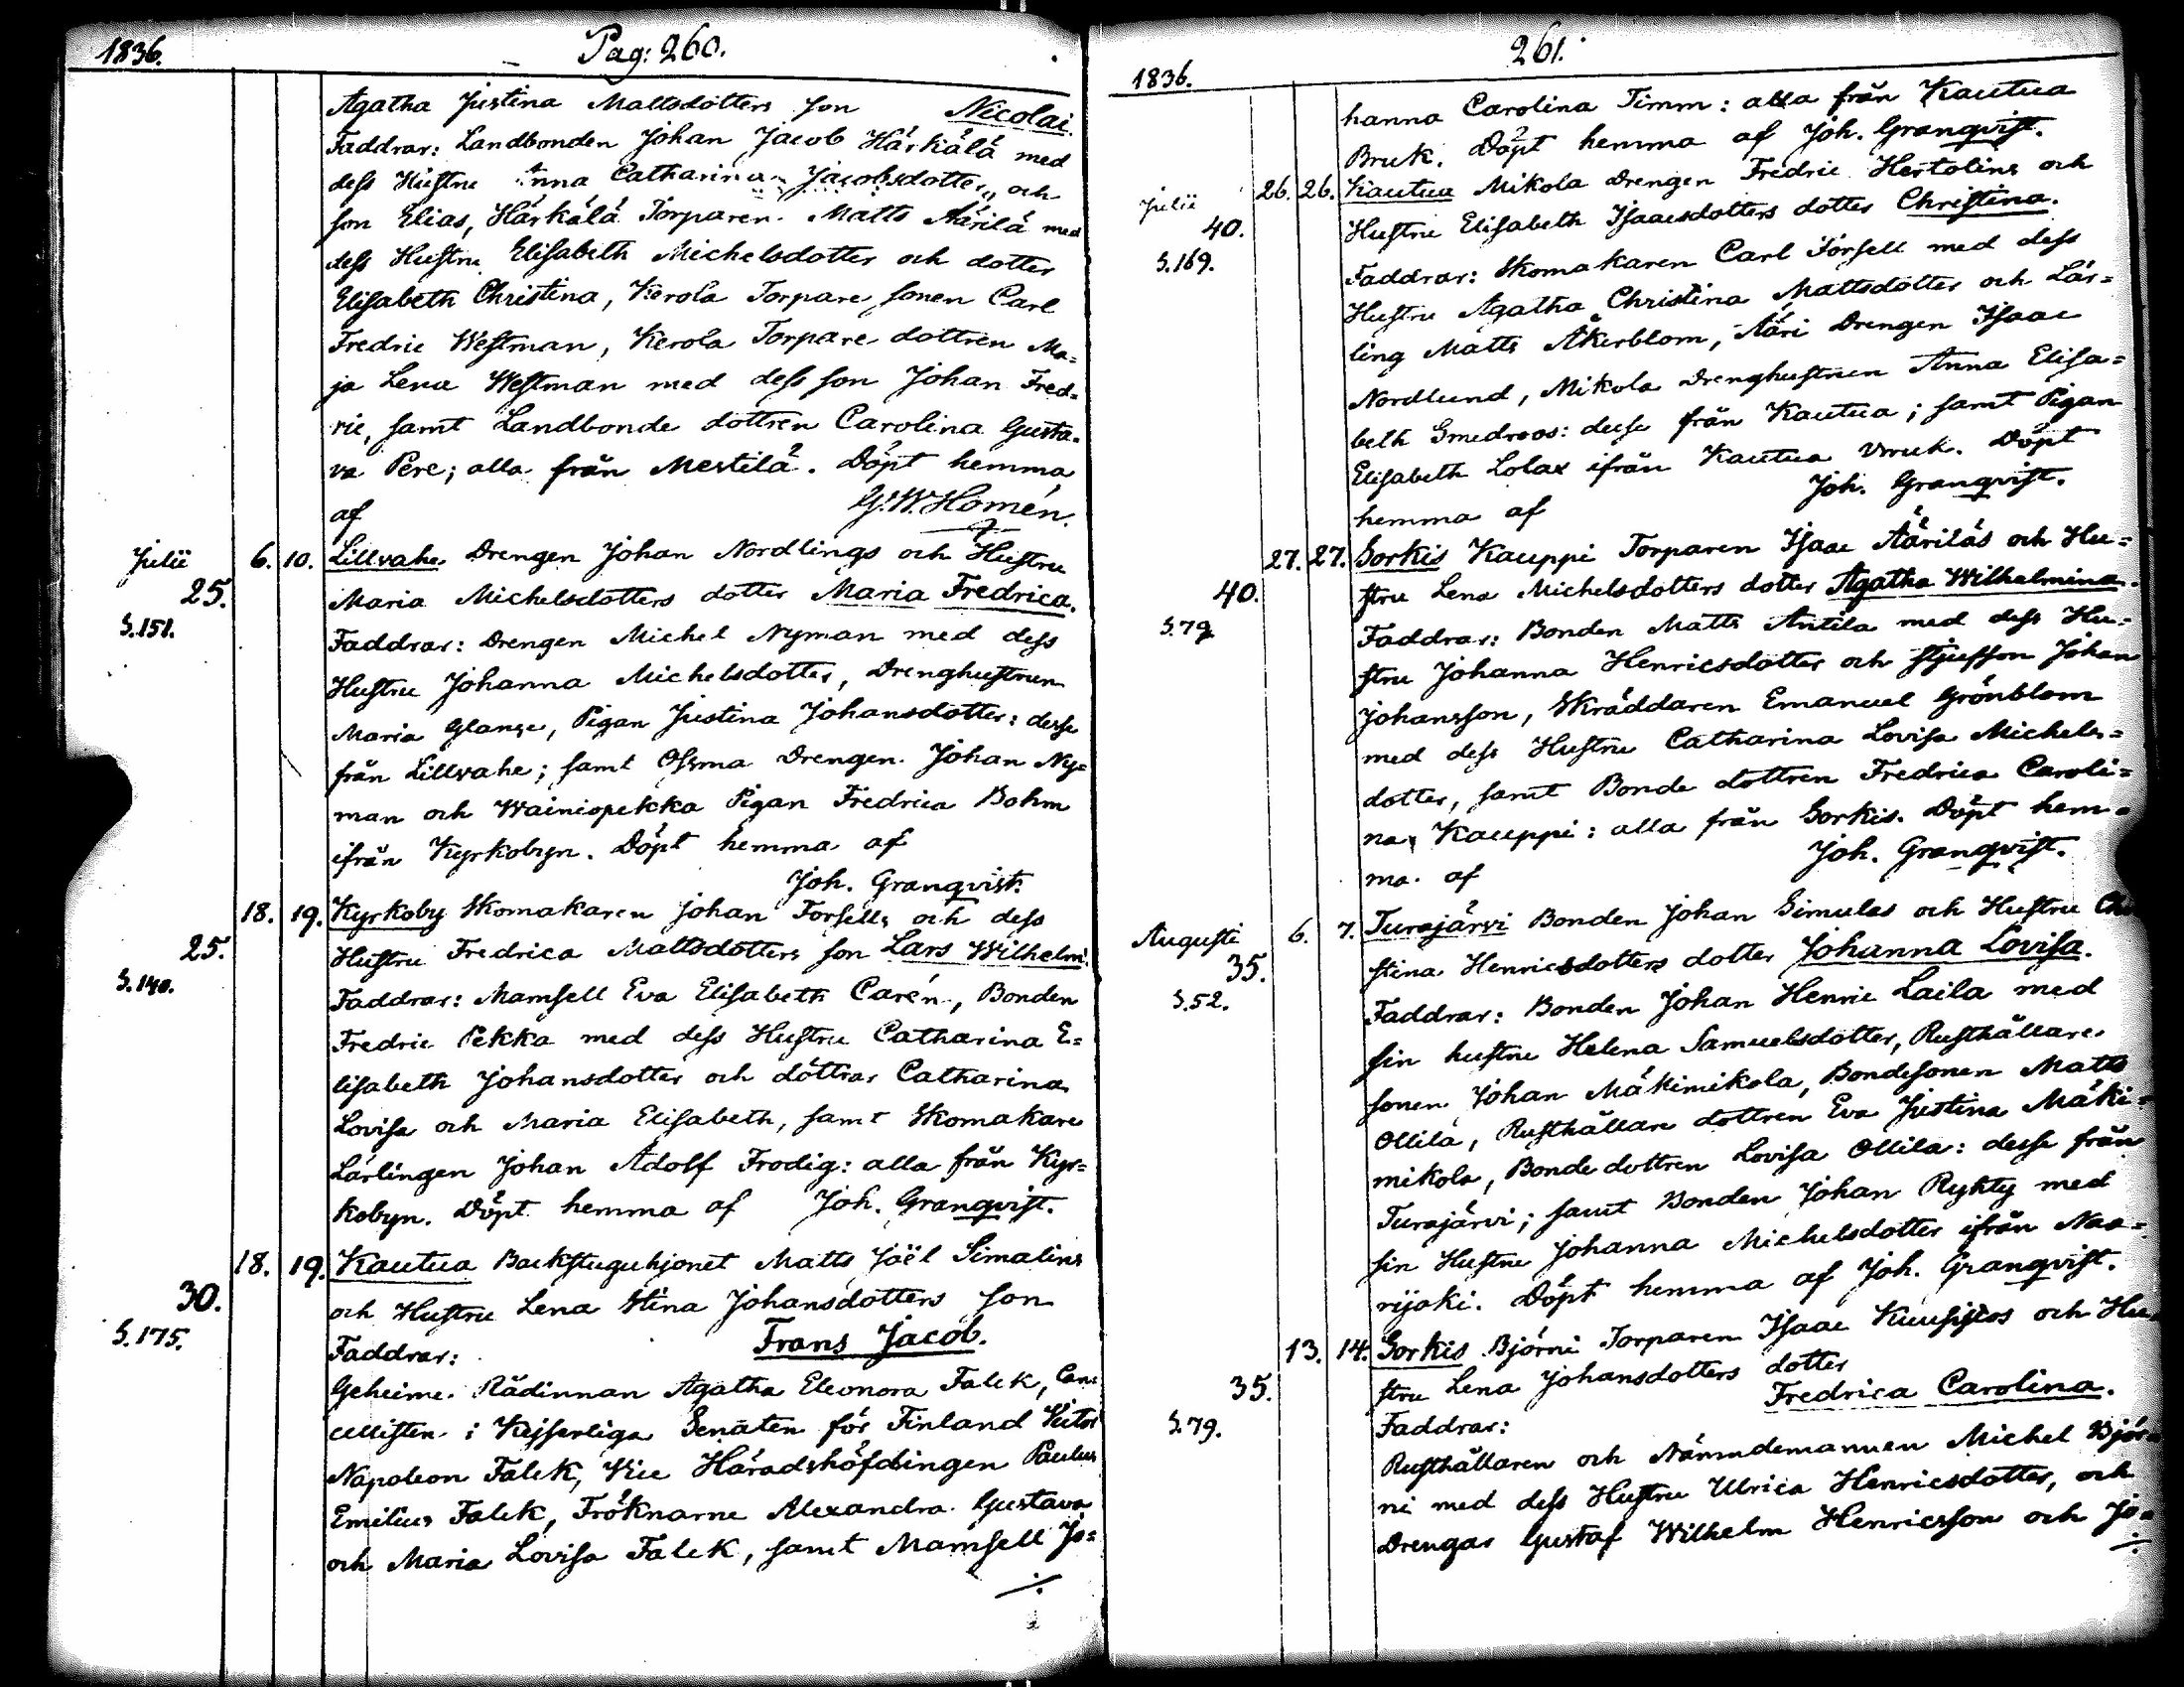 1836. Pag: 260.
Agatha Justina Mattsdotters son Nicolai.
Faddrar: Landbonden Johan Jacob Härkälä med
dess Hustru Anna Catharina Jacobsdotter, och
son Elias, Härkälä Torparen Matts Äärilä med
dess Hustru Elisabeth Michelsdotter och dotter
Elisabeth Christina, Kerola Torpare sonen Carl
Fredric Westman, Kerola Torpare dottren Ma=
ja Lena Westman med dess son Johan Fred=
ric, samt Landbonde dottren Carolina Gusta=
va Pere; alla från Mestilä. Döpt hemma
af G. W. Homén.
Julii 6. 10. Lillvahe Drengen Johan Nordlings och Hustru
25.
Maria Michelsdotters dotter Maria Fredrica.
S.151.
Faddrar: Drengen Michel Nyman med dess
Hustru Johanna Michelsdotter, Drenghustrun
Maria Glanse, Pigan Justina Johansdotter: desse
från Lillvahe; samt Ofsma Drengen Johan Ny=
man och Wainiopekka Pigan Fredrica Bohm
ifrån Kyrkobyn. Döpt hemma af
Joh. Granqvist.
18. 19. Kyrkoby Skomakaren Johan Forsells och dess
25.
Hustru Fredrica Mattsdotters son Lars Wilhelm.
S.140.
Faddrar: Mamsell Eva Elisabeth Carén, Bonden
Fredric Pekka med dess Hustru Catharina E=
lisabeth Johansdotter och döttrar Catharina
Lovisa och Maria Elisabeth, samt Skomakare
Lärlingen Johan Adolf Frodig: alla från Kyr=
kobyn. Döpt hemma af Joh. Granqvist.
18. 19. Kautua Backstuguhjonet Matts Joël Simalins
30.
och Hustru Lena Stina Johansdotters son
S.175.
Faddrar: Frans Jacob.
Geheime Rådinnan Agatha Eleonora Falck, Can=
cellisten i Kejserliga Senaten för Finland Victor
Napoleon Falck, Vice Häradshöfdingen Paulus
Emilius Falck, Fröknarne Alexandra Gustava
och Maria Lovisa Falck, samt Mamsell Jo=
./.
1836. 261.
hanna Carolina Timm: alla från Kautua
Bruk. Döpt hemma af Joh. Granqvist.
Julii 26. 26. Kautua Mikola Drengen Fredric Hertolins och
40.
Hustru Elisabeth Isaacsdotters dotter Christina.
S.169.
Faddrar: Skomakaren Carl Forsell med dess
Hustru Agatha Christina Mattsdotter och Lär=
ling Matts Åkerblom, Ääri Drengen Isaac
Nordlund, Mikola Drenghustrun Anna Elisa=
beth Smedroos: desse från Kautua; samt Pigan
Elisabeth Lolax ifrån Kautua Bruk. Döpt
hemma af Joh. Granqvist.
27. 27. Sorkis Kauppi Torparen Isaac Ääriläs och Hu=
40.
stru Lena Michelsdotters dotter Agatha Wilhelmina.
S.79.
Faddrar: Bonden Matts Antila med dess Hu=
stru Johanna Henricsdotter och stjufson Johan
Johansson, Skräddaren Emanuel Grönblom
med dess Hustru Catharina Lovisa Michels=
dotter, samt Bonde dottren Fredrica Caroli=
na Kauppi: alla från Sorkis. Döpt hem=
ma af Joh. Granqvist.
Augusti 6. 7. Turajärvi Bonden Johan Simulas och Hustru Chri
35.
stina Henricsdotters dotter Johanna Lovisa.
S.52.
Faddrar: Bonden Johan Henric Laila med
sin hustru Helena Samuelsdotter, Rusthållare
sonen Johan Mäkimikola, Bondesonen Matts
Ollila, Rusthållare dottren Eva Justina Mäki=
mikola, Bonde dottren Lovisa Ollila: desse från
Turajärvi; samt Bonden Johan Rykty med
sin Hustru Johanna Michelsdotter ifrån Naa=
rijoki. Döpt hemma af Joh. Granqvist.
13. 14. Sorkis Björni Torparen Isaac och Hu=
35.
stru Lena Johansdotters dotter
Fredrica Carolina.
S.79.
Faddrar:
Rusthållaren och Nämndemannen Michel Björ=
ni med dess Hustru Ulrica Henricsdotter, och
Drengar Gustaf Wilhelm Henricsson och Jo=
./.